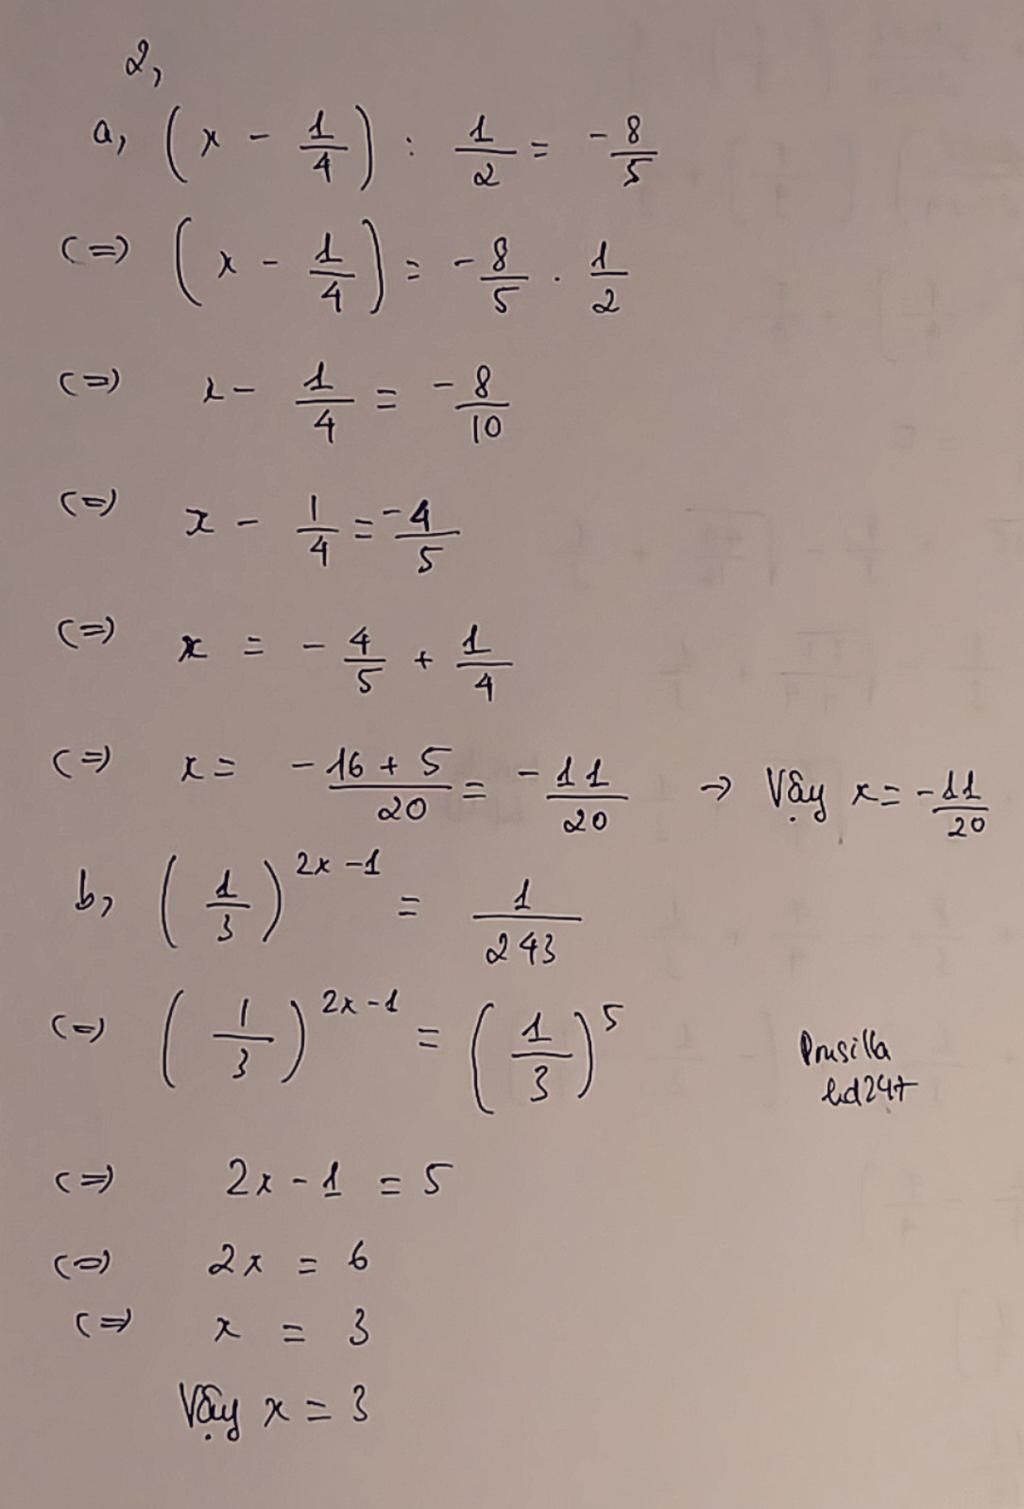 2,
a, (x - 1/4) : 1/2 = -8/5
<=> (x - 1/4) = -8/5 . 1/2
<=> x - 1/4 = -8/10
<=> x - 1/4 = -4/5
<=> x = -4/5 + 1/4
<=> x = (-16 + 5)/20 = -11/20 → Vậy x = -11/20
b, (1/3)^(2x-1) = 1/243
<=> (1/3)^(2x-1) = (1/3)^5
<=> 2x - 1 = 5
<=> 2x = 6
<=> x = 3
Vậy x = 3